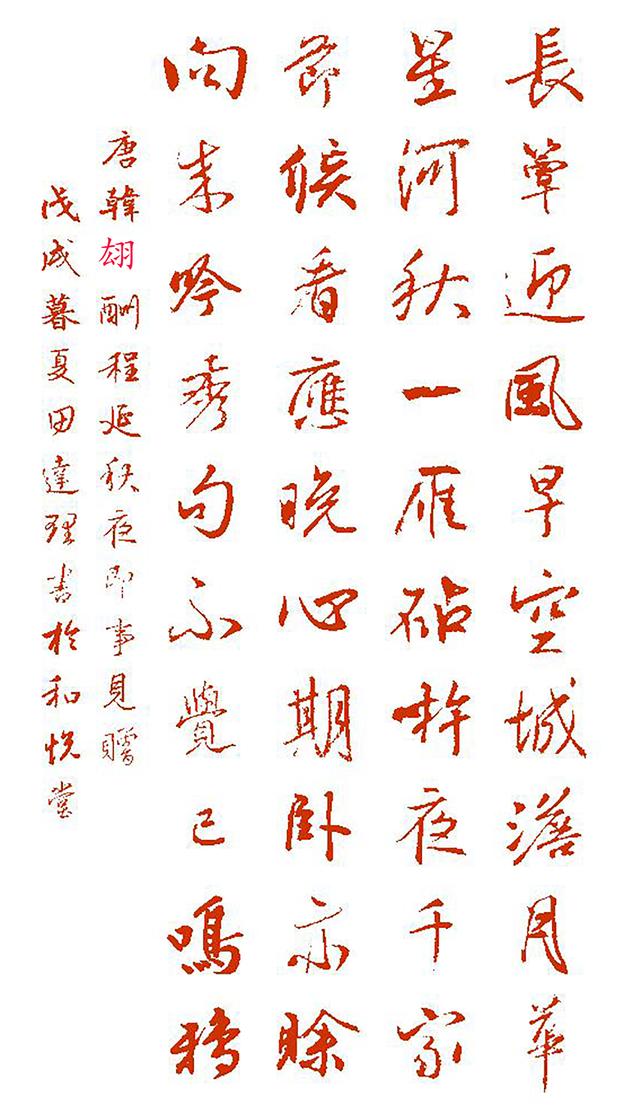 長簟迎風早空城澹月華
星河秋一雁砧杵夜千家
節候看應晚心期卧亦賒
向来吟秀句不覺已鳴鴉
唐韓翃酬程延秋夜即事見贈
戊戌暮夏田達理書於和悦堂